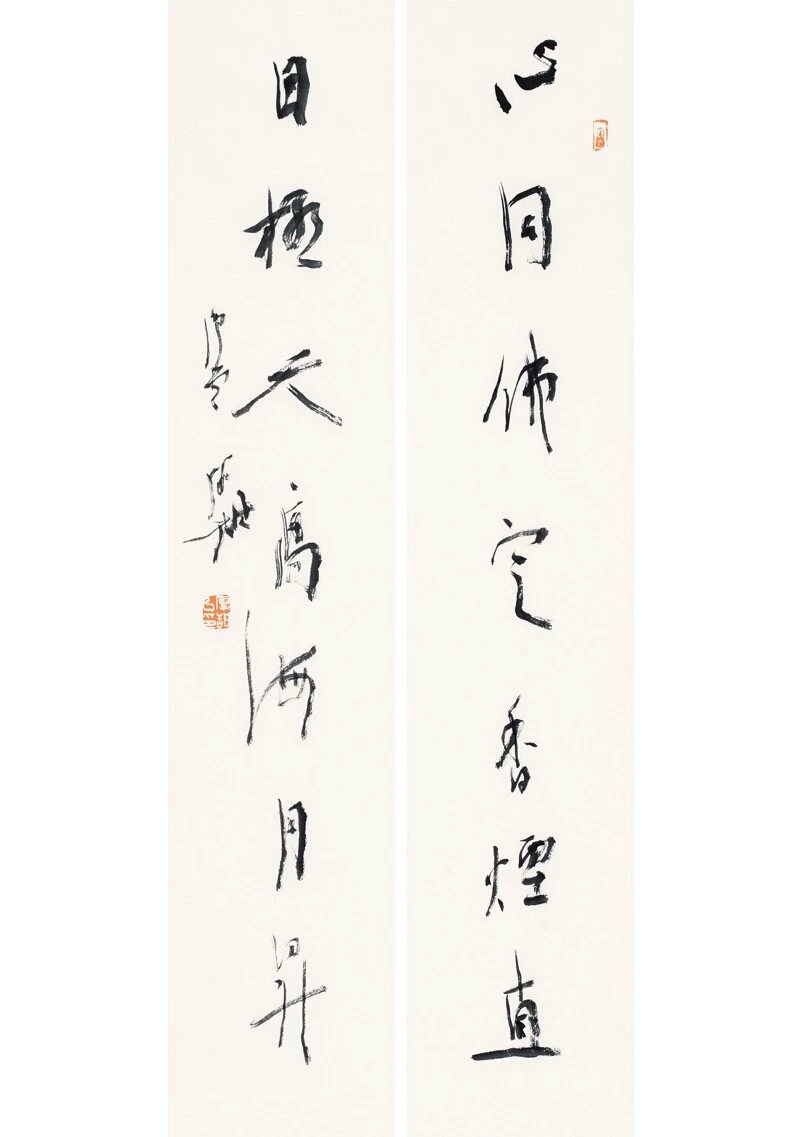 心同佛定香煙直
目極天高海月昇